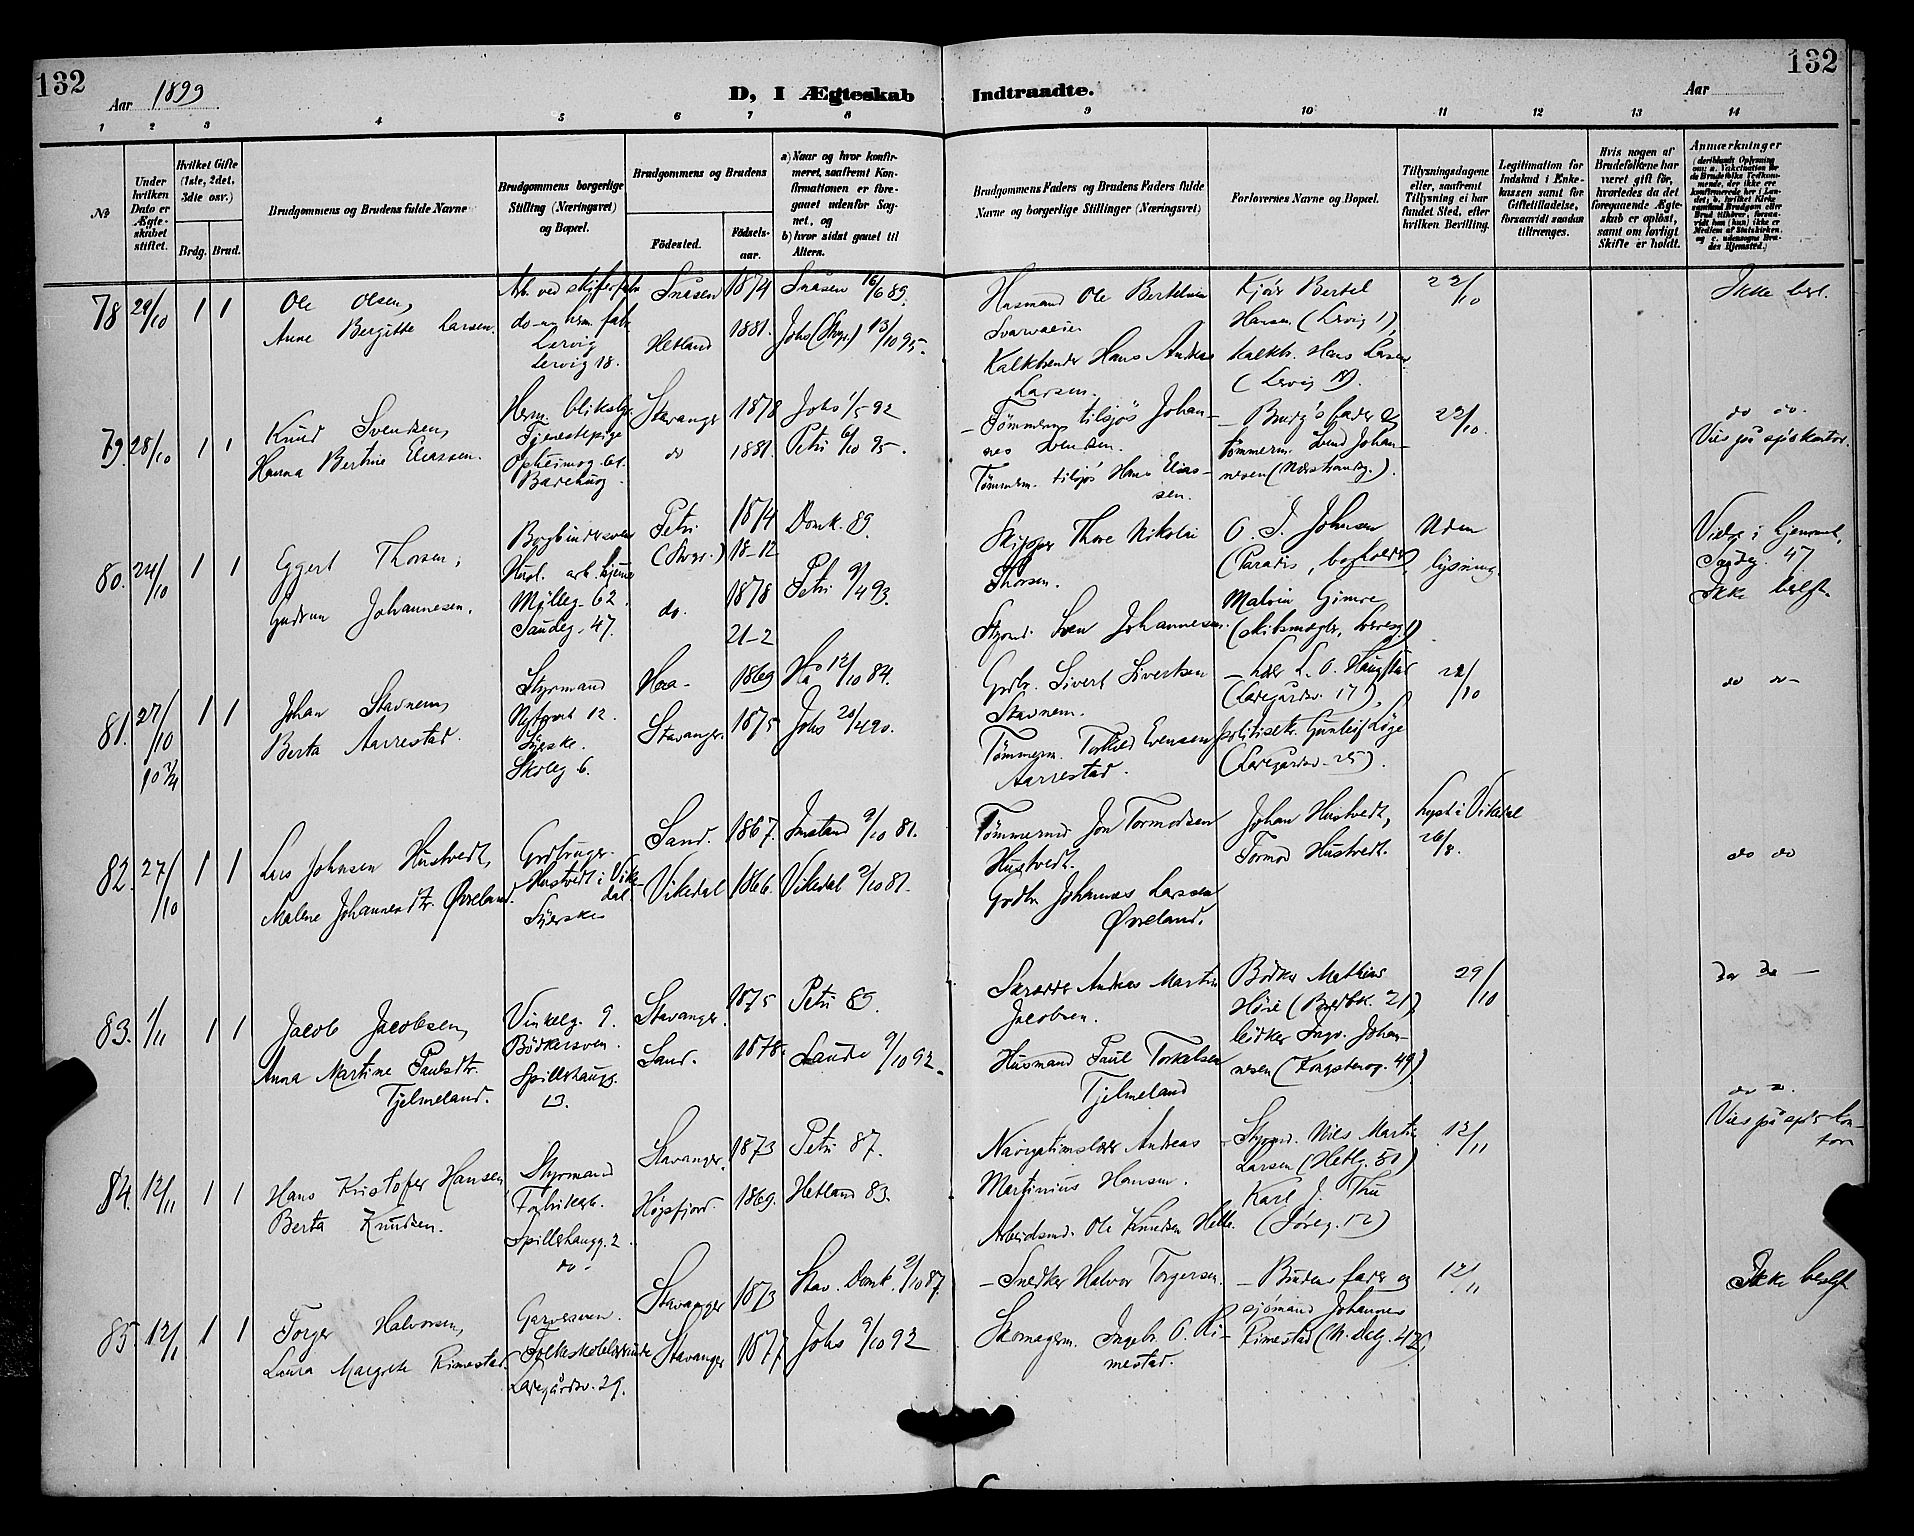 132
Aar 1899
D, I Ægteskab Indtraadte.
Aar
132
1 2 3 4 5 6 7 8 9 10 11 12 13 14
No
Under hvilken Dato er Ægteskabet stiftet.
Hvilket Gifte (1ste, 2det, 3die osv.)
Brdg. Brud.
Brudgommens og Brudens fulde Navne
Brudgommens borgerlige Stilling (Næringsvei) og Bopæl.
Brudgommens og Brudens
Födested.
Födselsaar.
a) Naar og hvor konfirmeret, saafremt Konfirmationen er foregaaet udenfor Sognet, og
b) hvor sidst gaaet til Alters.
Brudgommens Faders og Brudens Faders fulde Navne og borgerlige Stillinger (Næringsvei)
Forlovernes Navne og Bopæl.
Tillysningsdagene eller, saafremt Tillysning ei har fundet Sted, efter hvilken Bevilling.
Legitimation for Indskud i Enkekassen samt for Giftetilladelse, forsaavidt saadan tiltrænges.
Hvis nogen af Brudefolkene har været gift för, hvorledes da det foregaaende Ægteskab er oplöst, samt om lovligt Skifte er holdt.
Anmærkninger
78 29/10 1 1
Ole Olsen,
Anne Bergitte Larsen.
Lervig
Lervig 18.
Snåsen 1874 Snåsen 16/6 89.
Hetland 1881. Johs (Svgr.) 13/10 95.
Husmand Ole Bertelsen
Svarvaeien
Kalkbrænder Hans Andreas
Larsen.
Kjör Bertel
Hansen (Lervig 1),
Kalkbr. Hans Larsen
(Lervig 18).
22/10
Ikke besl.
79. 28/10 1 1
Knud Svendsen,
Hanna Bertine Eliassen.
Tjenestepige
Stavanger 1878 Johs 1/5 92
do 1881. Petri 6/10 95.
Tömmerm. tilsjös Johannes Svendsen.
Tömmerm. tilsjös Hans Eliassen.
Brudg's fader og
tömmerm. Svend Johannesen (Næsstrandg.).
22/10.
do do.
Vies på spr's kontor.
80. 24/10 1 1
Eggert Thorsen,
Gudrun Johannesen.
Bogbindersven
Mölleg. 62.
Sandeg. 47.
Petri (Svgr.) 1874 18-12 Domk. 89.
do. 1878 21-2 Petri 9/4 93.
Skipper Thore Nikolai
Thorsen.
Styrmd. Sven Johannesen.
O. J. Johnsen
(Paradis, bogholder),
Malvin Gimre
(skibsmægler,
Uden
lysning
Viedes i hjemmet,
Sandeg. 47
Ikke beslgt.
81. 27/10 1 1
10 3/4
Johan Stavnem,
Berta Aarrestad.
Styrmand
Nytorvet 12.
Syerske.
Skoleg 6.
Haa- 1869 Hå 12/10 84.
Stavanger. 1875 Johs 20/4 90.
Grdbr. Sivert Sivertsen
Stavnem.
Tömmerm. Torkel Evensen
Aarrestad.
Lærer L. O. Haugstad
(Ladegårdsv. 17),
politibetr. Gunleif Löge
(Ladegårdsv. 25).
22/10
do do-
82. 27/10 1 1
Lars Johnsen Hustvedt,
Malene Johannesdtr. Øvreland.
Grdbruger.
Hustvedt i Vikedal.
Syerske
Sand. 1867. Imsland 9/10 81.
Vikedal 1866. Vikedal 2/10 81.
Tömmermd. Jon Tormodsen
Hustvedt.
Grdbr Johannes Larsen
Øvreland.
Johan Hustvedt,
Tormod Hustvedt.
Lyst i Vikedal
26/8.
do do
83. 1/11 1 1
Jacob Jacobsen,
Anna Martine Paulsdtr.
Tjelmeland.
Vinkelg. 9.
Bödkersven.
Spilderhaugg.
13.
Stavanger. 1875 Petri 89.
Sand. 1878. Saude 9/10 92.
Skrædder Andreas Martin
Jacobsen.
Husmand Paul Torkelsen
Tjelmeland
Bödker Mathias
Höie (Bredbk. 21),
bödker Ingv. Johannesen (Kongstenog. 49)
29/10
do do -
84. 12/11 1 1
Hans Kristofer Hansen,
Berta Knudsen.
Styrmand
Fabrikarb.
Spilderhaugg. 2
do-
Stavanger. 1873 Petri 87.
Högsfjord. 1869. Hetland 83.
Navigationslærer Andreas
Martinius Hansen.
Arbeidsmd. Ole Knudsen Helle.
Styrmd. Nils Martin
Larsen (Hetlg. 51)
Karl J. Thu
(Jöreg. 12)
12/11
do do.
Vies på spr's kontor
85. 12/11 1 1
Torger Halvorsen,
Laura Margrete Rimestad.
Garversven.
Folkeskolelærerinde
Ladegårdsv. 29.
Stavanger 1873 Stav. Domk. 9/10 87.
Stavanger 1877 Johs 9/10 92
Snedker Halvor Torgersen.
Skomagerm. Ingebr. O. Rimestad.
Brudens fader og
sjömand Johannes
Rimestad
12/11
Ikke beslgt